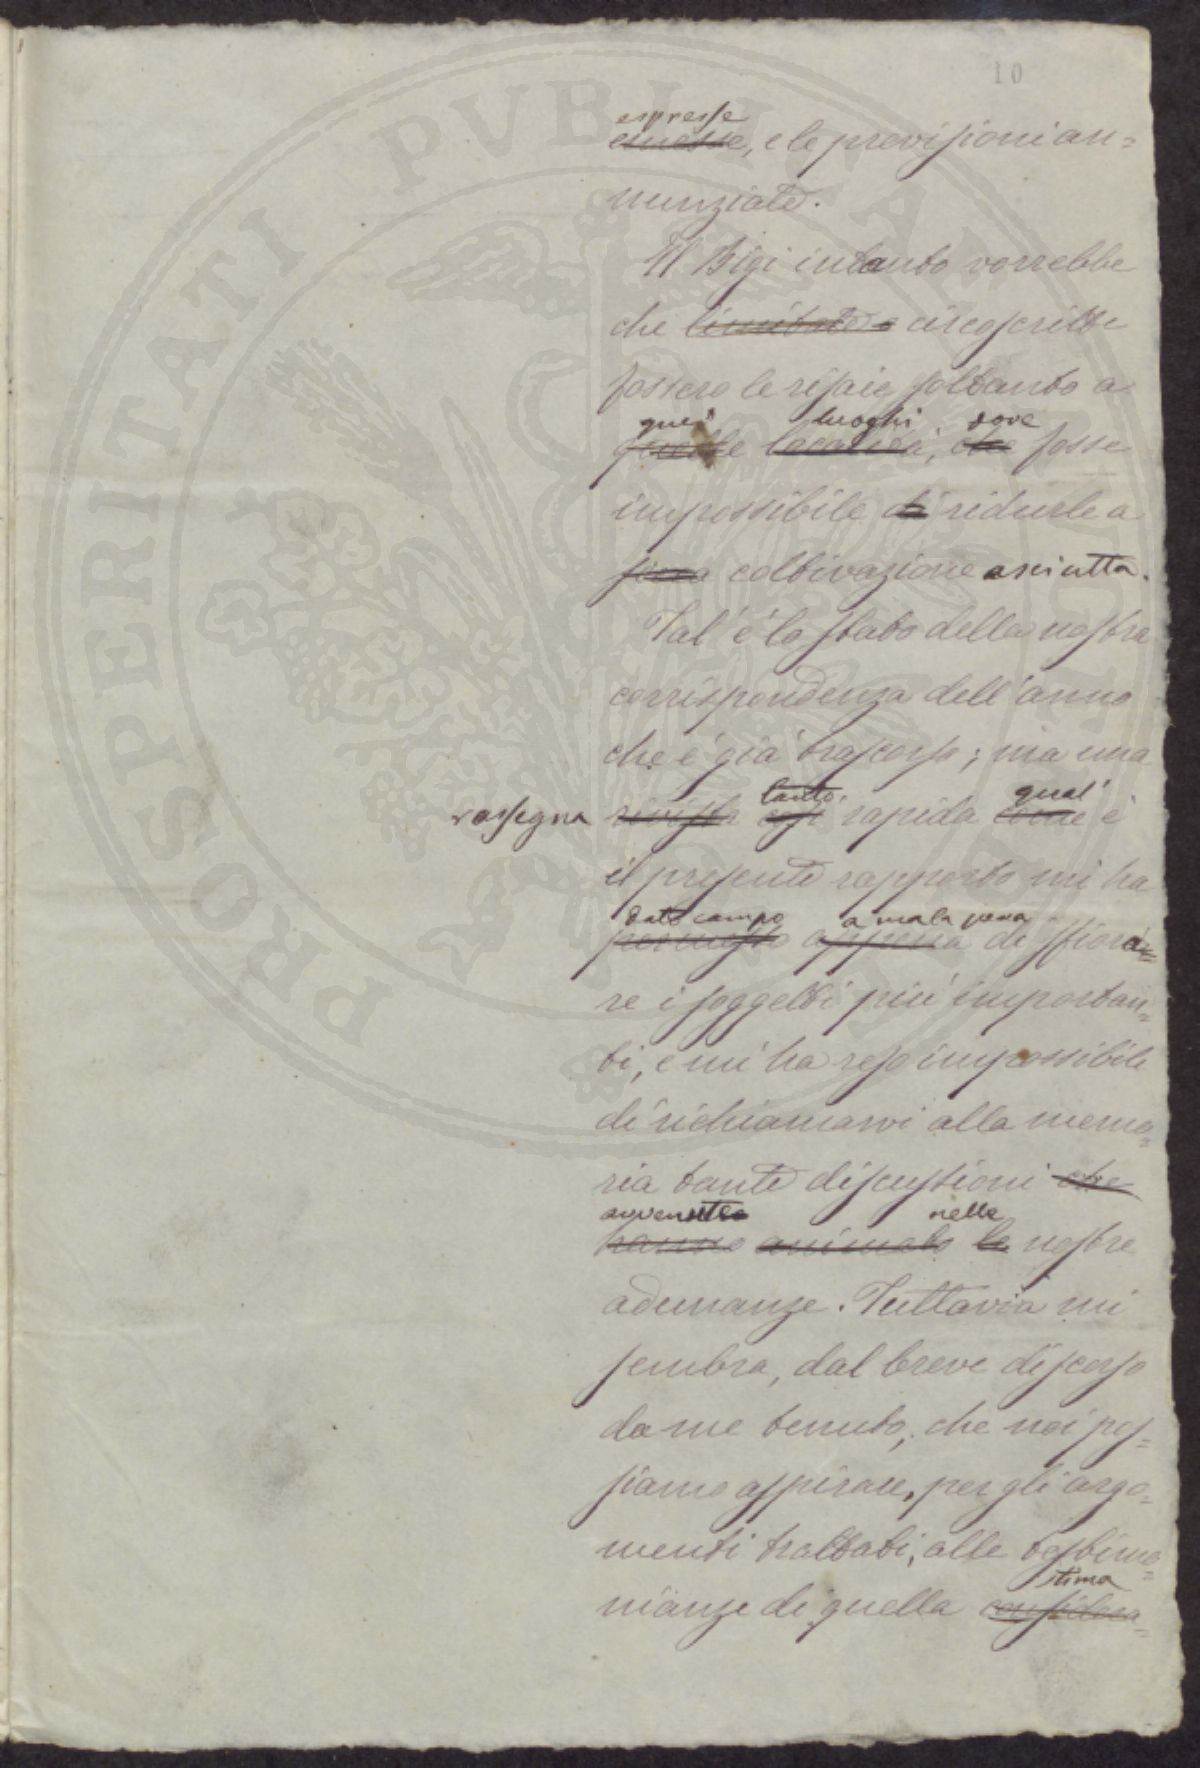 10
espresse
emesse, e le previsioni an=
nunziate.
Il Bigi intanto vorrebbe
che limitate e circoscritte
fossero le risaie soltanto a
quei luoghi, dove
quelle località, che fosse
impossibile di ridurle a
sana coltivazione asciutta.
Tal'è lo stato della nostra
corrispondenza dell'anno
che è già trascorso; ma una
tanto, qual'
rassegna rivista così rapida come è
il presente rapporto mi ha
dato campo a mala pena
permesso appena di sfiora=
re i soggetti più importan=
ti, e mi ha reso impossibile
di richiamarvi alla memo=
ria tante discussioni che
avvenute nelle
hanno animato le nostre
adunanze. Tuttavia mi
sembra, dal breve discorso
da me tenuto, che noi pos=
siamo aspirare, per gli argo=
menti trattati, alle testimo=
stima
nianze di quella considera=
PROSPERITATI PVBLICAE